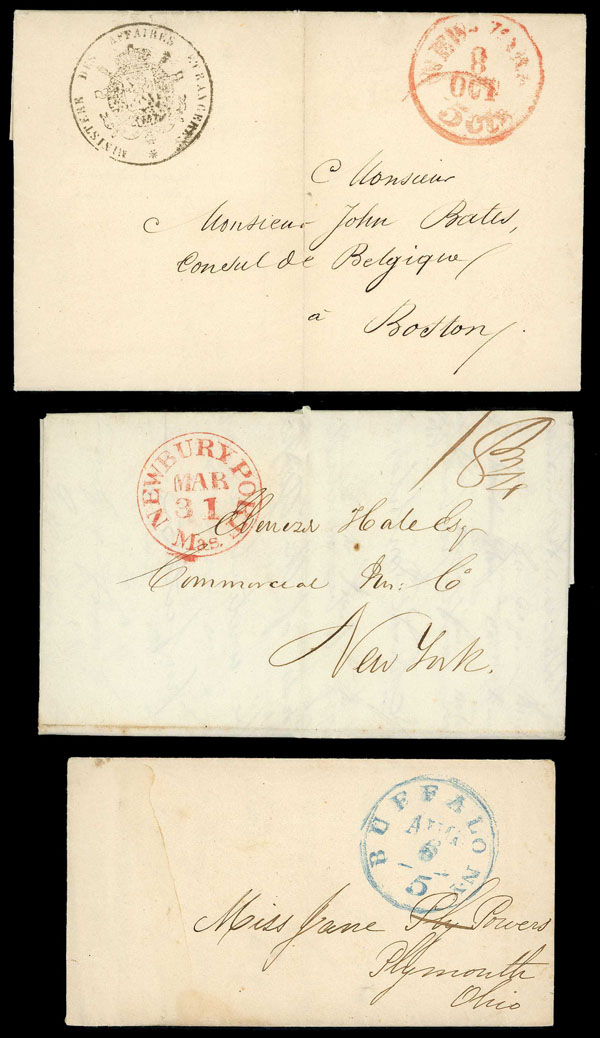 MINISTERE DES AFFAIRES ETRANGERES
NEW-YORK
8
OCT
5 cts
Monsieur
Monsieur John Bates,
Consul de Belgique
à
Boston
NEWBURYPORT
MAR
31
Mas.
18 3/4
Ebenezr Hale Esqr
Commercial Ins: Co
New York.
BUFFALO N.Y.
AUG
6
5
Miss Jane Ply Powers
Plymouth
Ohio